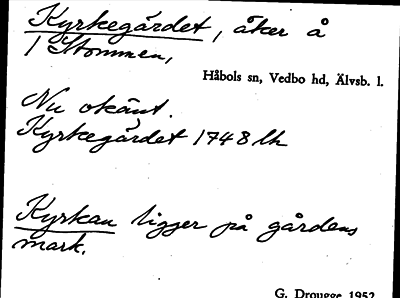 Kyrkegärdet, åker å
1 Stommen,
Håbols sn, Vedbo hd, Älvsb. l.
Nu okänt.
Kyrkegärdet 1748 lh
Kyrkan ligger på gårdens
mark.
G. Drougge 1952